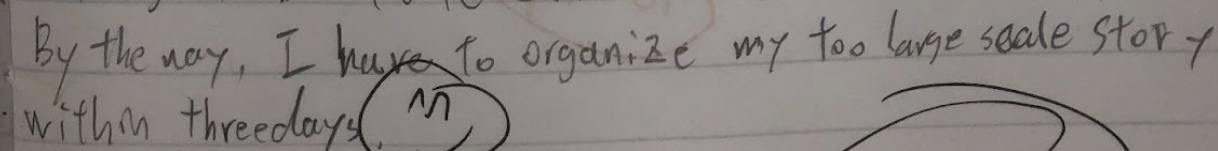 By the way, I have to organize my too large scale story
within threedays.